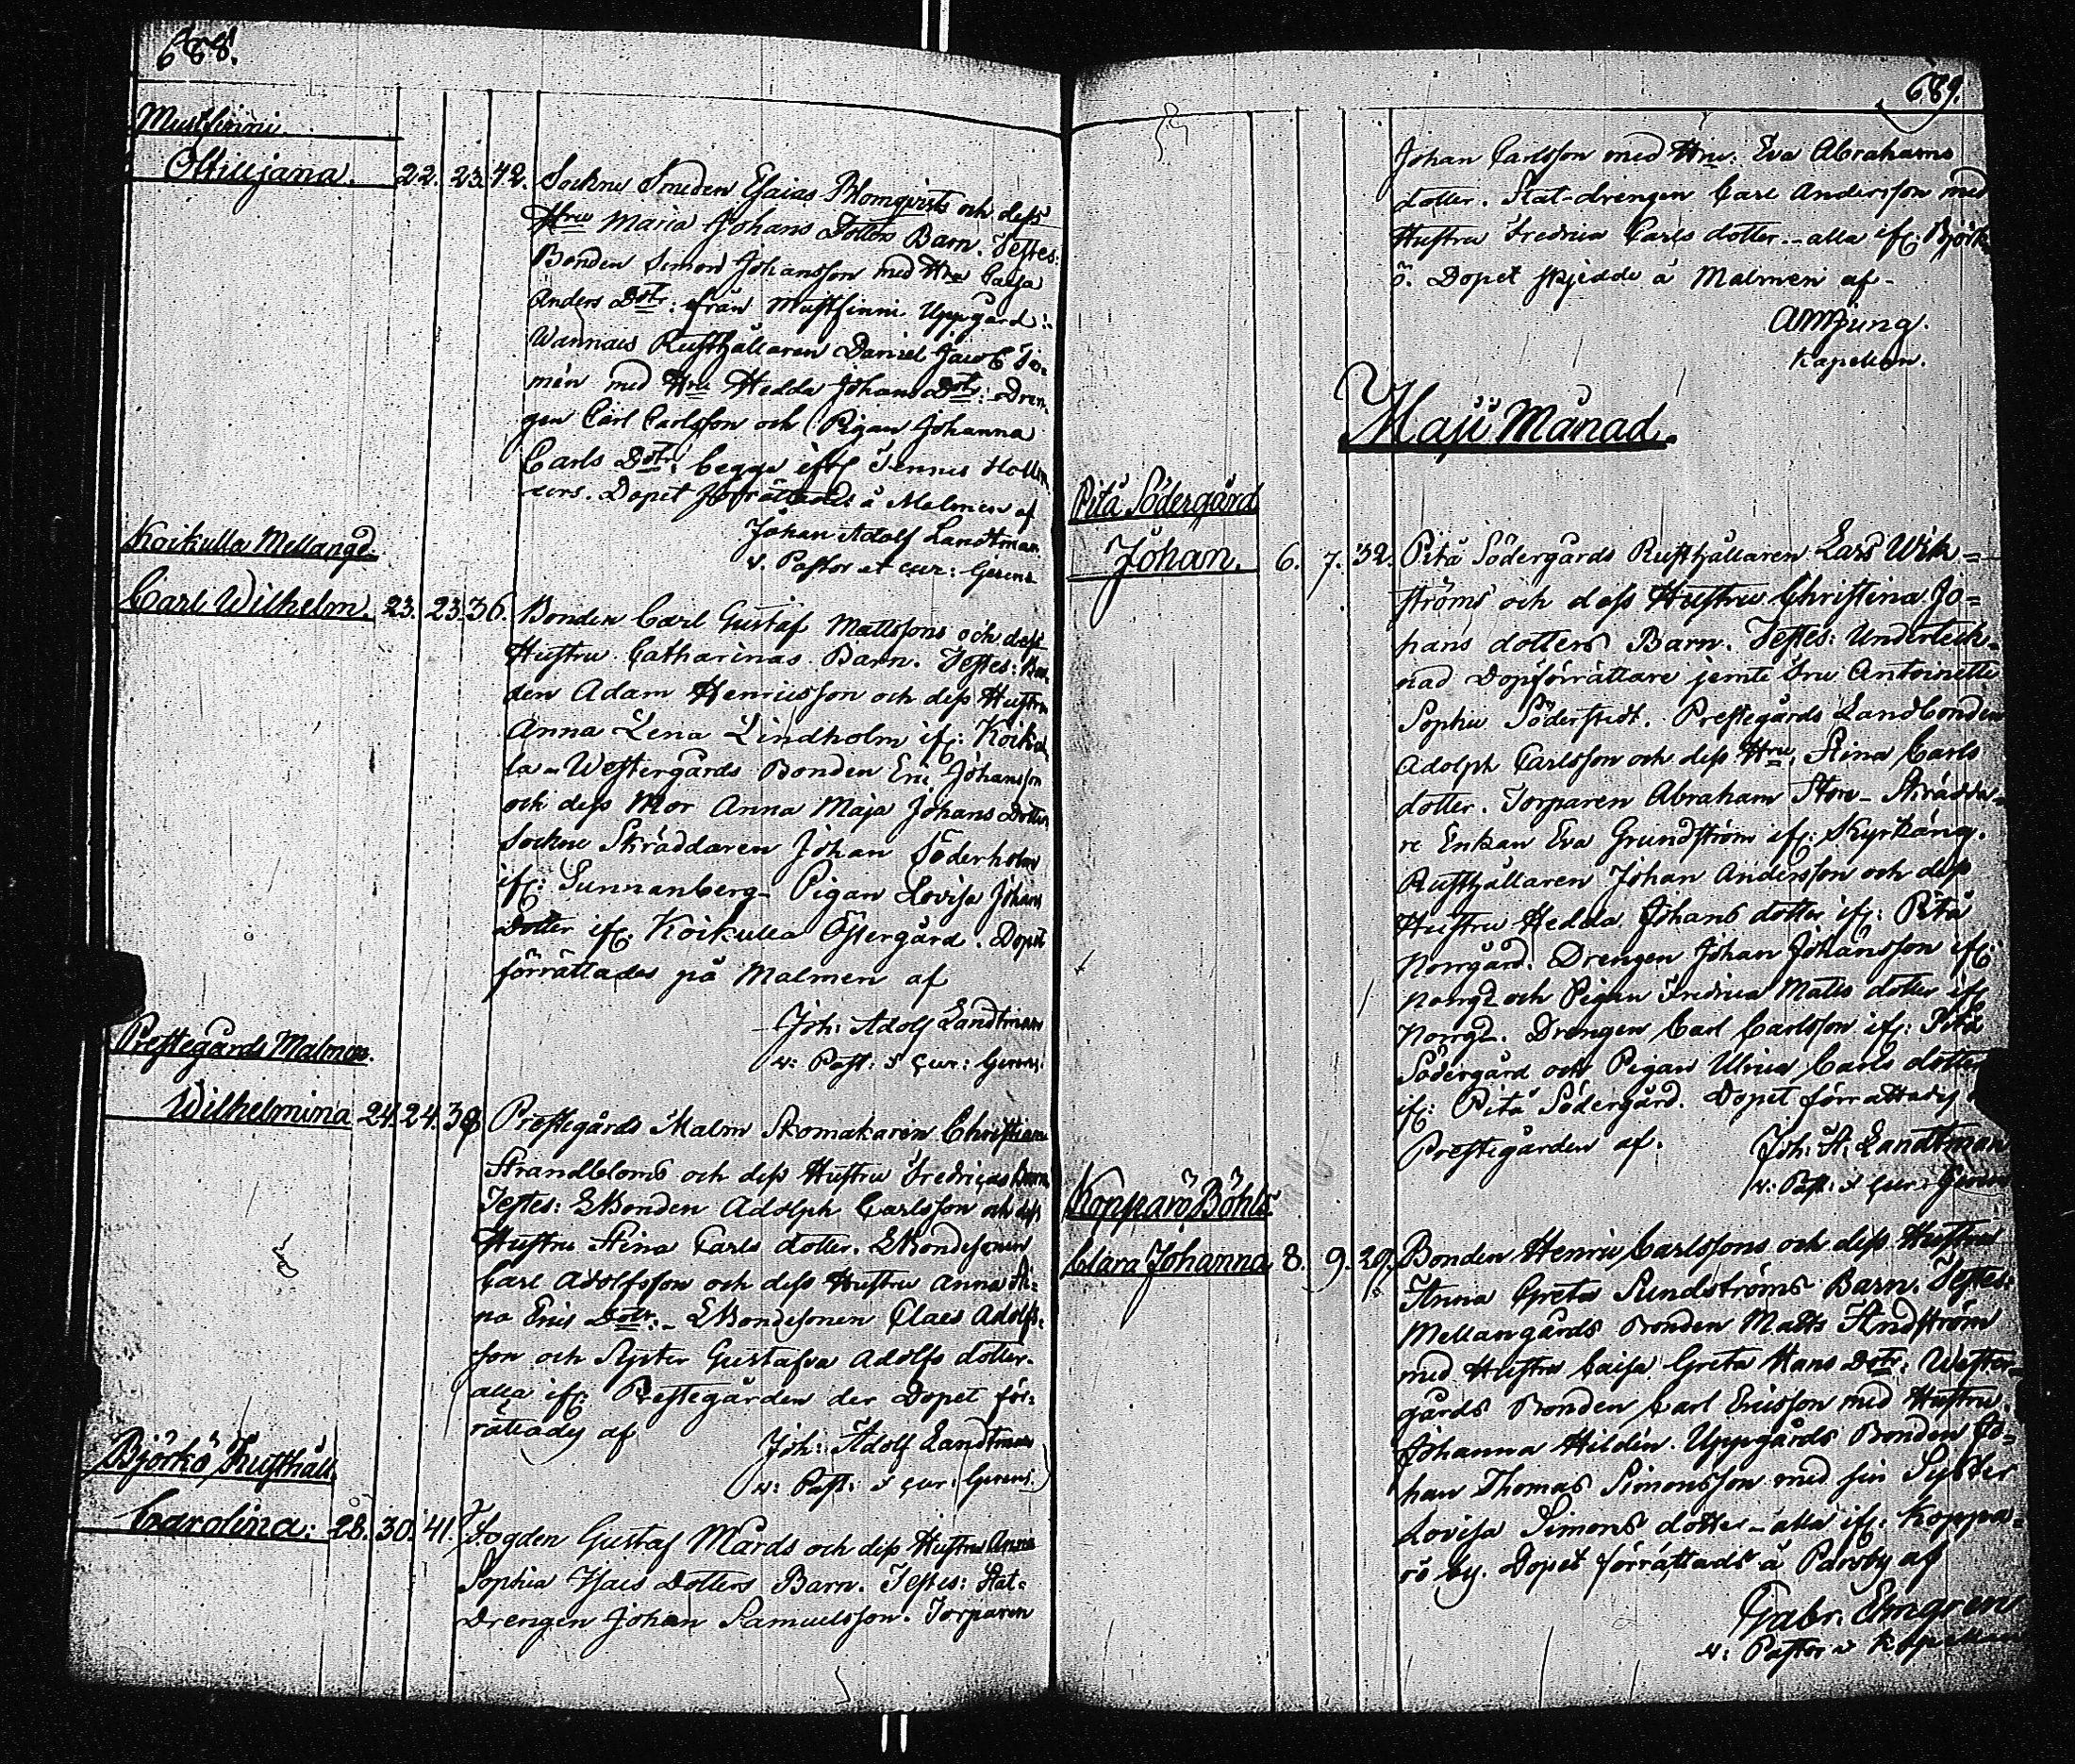 688.
Mustfinni
Ottiljana. 22. 23. 42. Sockne Smeden Esaias Blomqvists och dess
Hru Maria Johans Dotters Barn. Testes:
Bonden Simon Johansson med Hru Caisa
Anders Dotr: från Mustfinni Uppgård:
Wannais Rusthållaren Daniel Jacob
med Hru Hedda Johans Dotr: Dren-
gen Carl Carlsson och Pigan Johanna
Carls Dotr: begge ifr: Tennis
Dopet förrättades å Malmen af
Johan Adolf Landtman
v. Pastor et cur: Gerens
Koikulla Mellangd.
Carl Wilhelm. 23. 23. 36. Bonden Carl Gustaf Mattssons och dess
Hustru Catharinas Barn. Testes: Bon-
den Adam Henricsson och dess Hustru
Anna Lena Lindholm ifr: Koikul
la - Westergårds Bonden Eric Johansson
och dess Mor Anna Maja Johans Dotter
Sockne Skräddaren Johan Söderholm
ifr: Sunnanberg - Pigan Lovisa Johans
Dotter ifr: Koikulla Östergård. Dopet
förrättades på Malmen af
Joh: Adolf Landtman
v: Past: & cur: Gerens.
Prestegårds Malmen.
Wilhelmina 24. 24. 38 Prestegårds Malm Skomakaren Christian
Strandbloms och dess Hustru Fredricas Barn
Testes: LBonden Adolph Carlsson och dess
Hustru Stina Carls dotter. LBondesonen
Carl Adolfsson och dess Hustru Anna Sti-
na Erics Dotr: - LBondesonen Claes Adolfs-
son och Syster Gustafva Adolfs dotter.
alla ifr: Prestegården der Dopet för-
rättades af
Joh: Adolf Landtman
v: Past: & cur: Gerens.
Björkö Rusthåll
Carolina. 28. 30. 41. Fogden Gustaf Mårds och dess Hustru Anna
Sophia Isacs Dotters Barn. Testes: Stat-
Drengen Johan Samuelsson. Torparen
689.
Johan Carlsson med Hru. Eva Abrahams
dotter. Stat-drengen Carl Andersson med
Hustru Fredrica Carls dotter. - alla ifr: Björk
ö. Dopet skjedde å Malmen af -
Kapellan.
Maji Månad.
Pitä Södergård
Johan. 6. 7. 32. Pitä Södergårds Rusthållaren Lars Wik-
ströms och dess Hustru Christina Jo-
hans dotters Barn. Testes: Underteck-
nad Dopförrättare jemte Fru Antoinette
Sophie Söderstedt. Prestegårds Landbonden
Adolph Carlsson och dess Hru Stina Carls
dotter. Torparen Abraham Store - Skrädda-
re Enkan Eva Grundström ifr: Kyrkäng.
Rusthållaren Johan Andersson och dess
Hustru Hedda Johans dotter ifr: Pitä
Norrgård. Drengen Johan Johansson ifr:
Norrgd och Pigan Fredrica Matts dotter ifr
Norrgd. Drengen Carl Carlsson ifr: Pitä
Södergård och Pigan Ulrica Carls dotter
ifr: Pitä Södergård. Dopet förrättades i
Prestegården af. Joh: A: Landtman
v: Past: & cur: Gerens
Kopparö Böhls
Clara Johanna 8. 9. 29. Bonden Henric Carlssons och dess Hustru
Anna Greta Sundströms Barn. Testes:
Mellangårds Bonden Matts Andström
med Hustru Caisa Greta Hans Dotr: Wester-
gårds Bonden Carl Ericsson med Hustru.
Johanna Hildén. Uppgårds Bonden Jo-
han Thomas Simonsson med sin Syster
Lovisa Simons dotter - alla ifr: Koppa-
rö by. Dopet förrättades å Parsby af
Gabr. Elmgren
v: Pastor & Kapellan